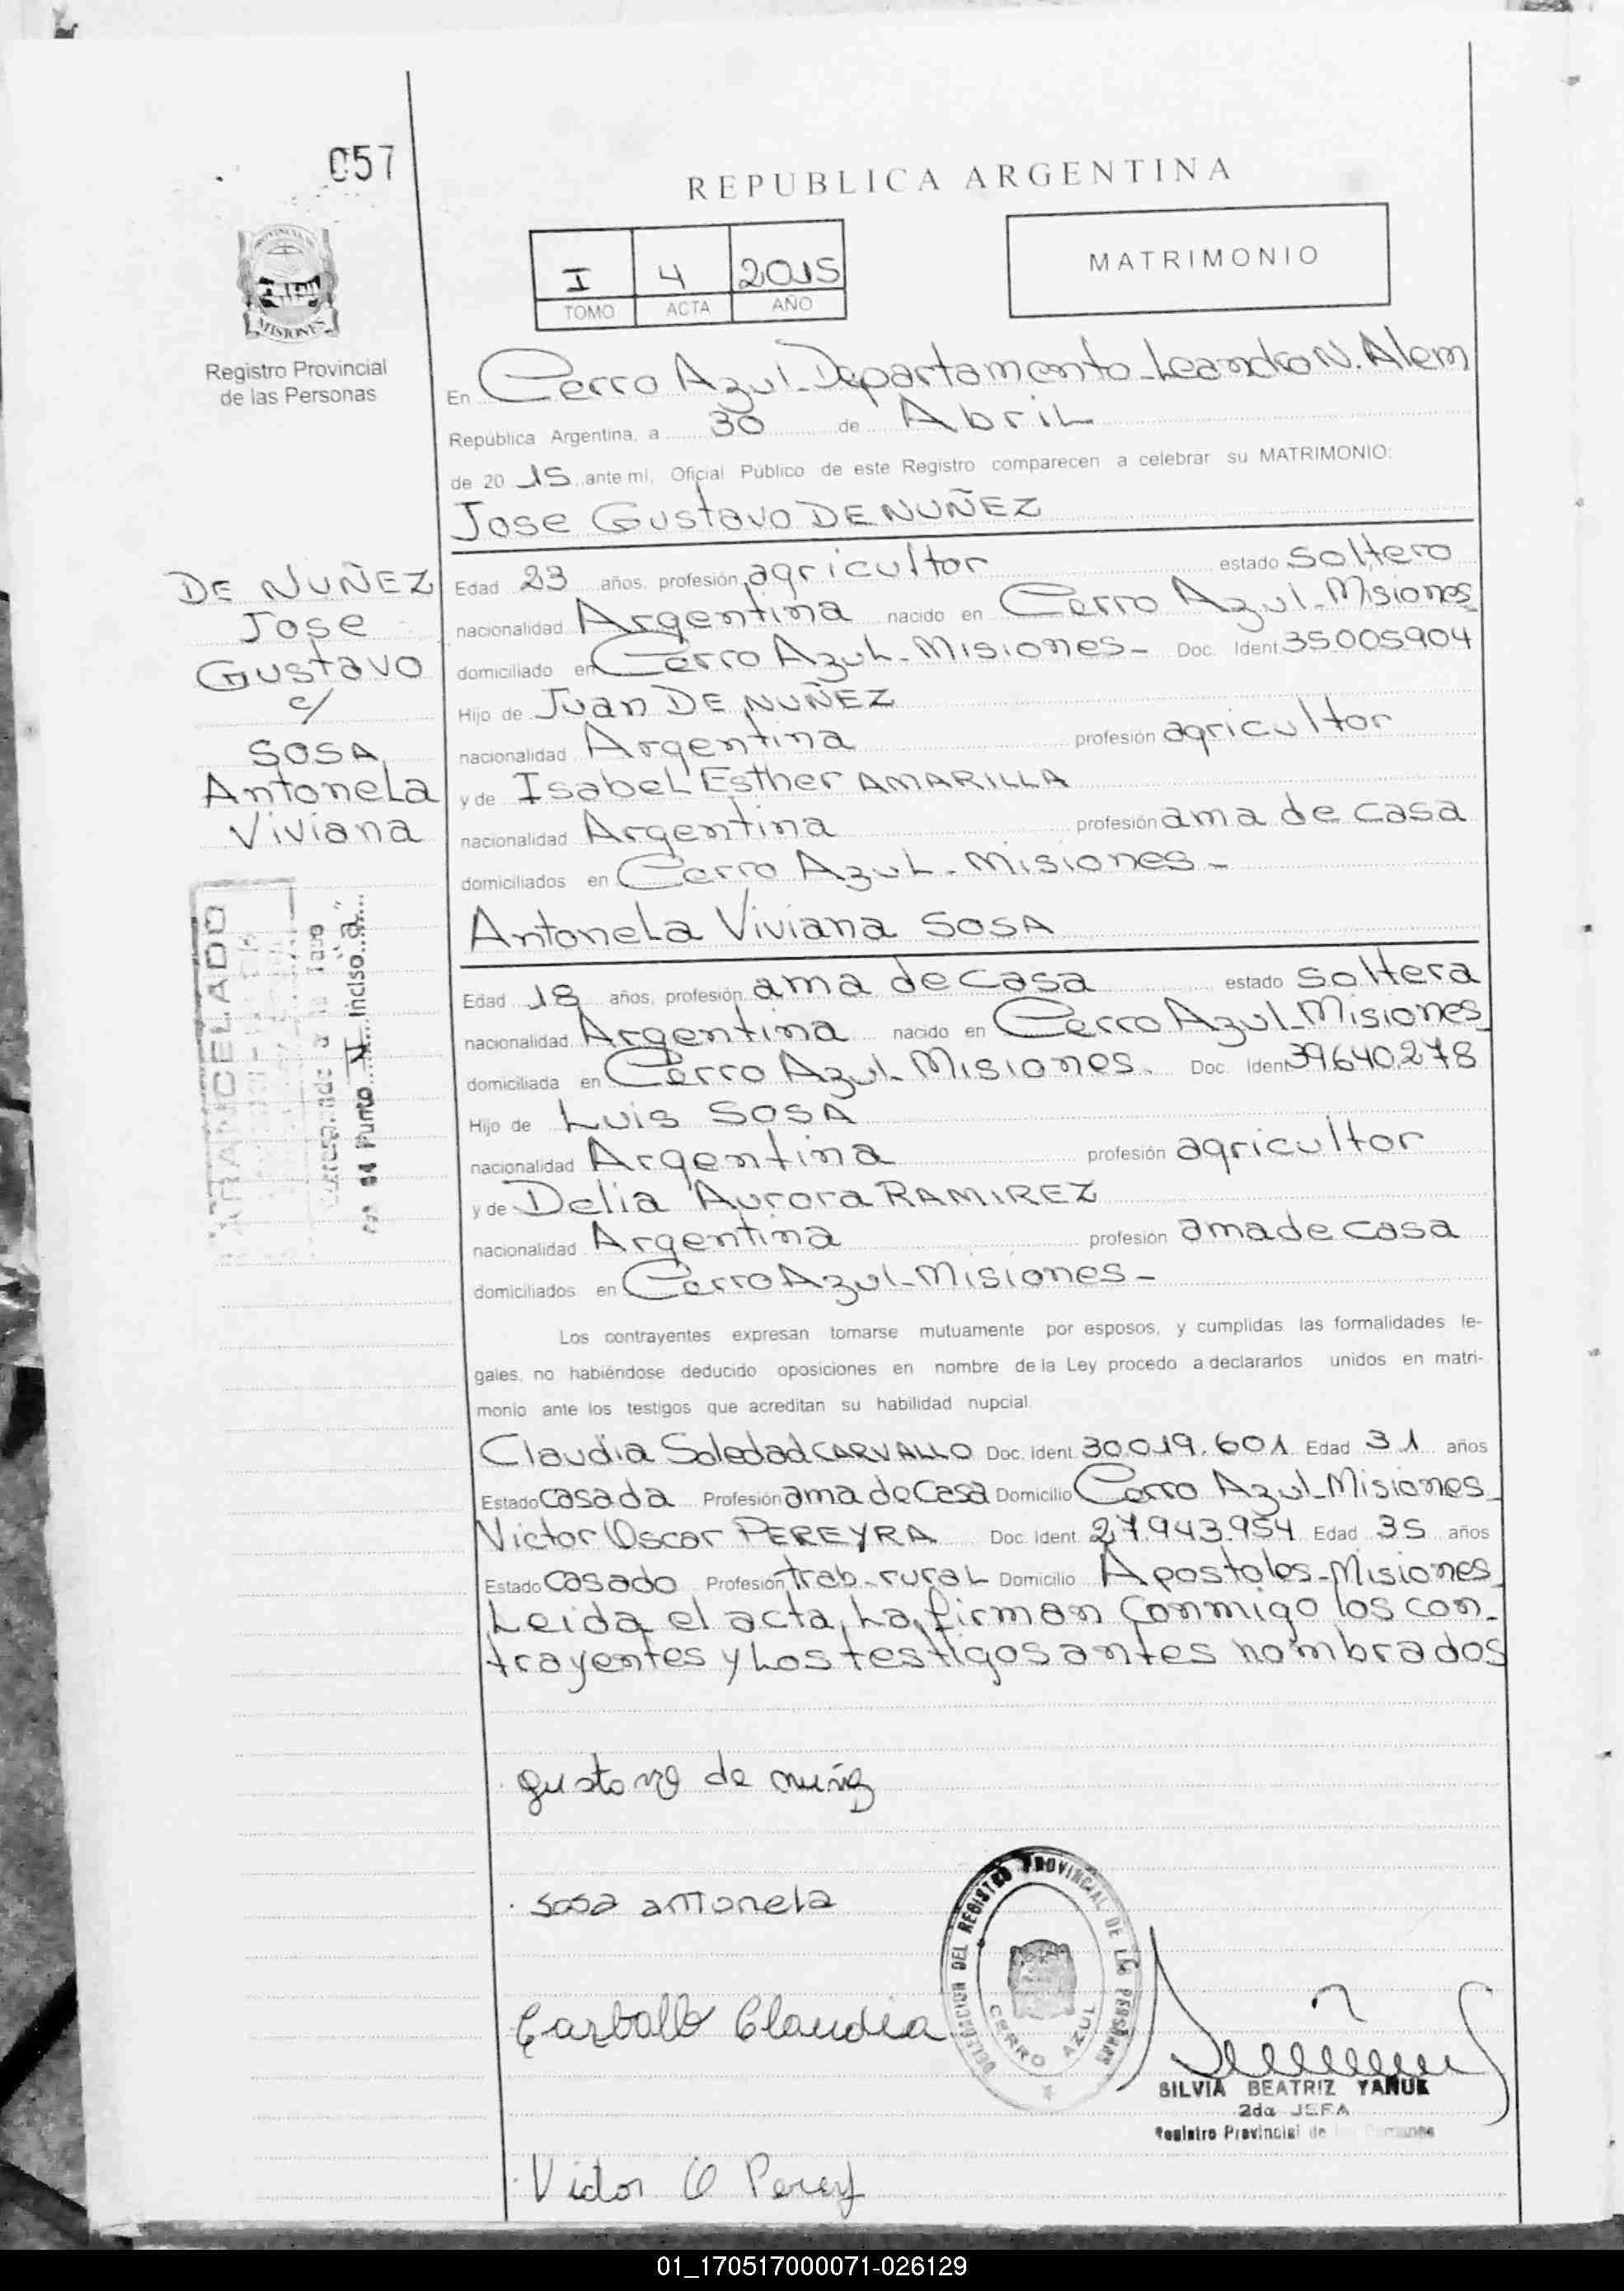 057
REPUBLICA ARGENTINA
PROVINCIA DE
MISIONES
Registro Provincial
de las Personas
I 4 2015
TOMO ACTA AÑO
MATRIMONIO
En Cerro Azul-Departamento-Leandro N. Alem
República Argentina, a 30 de Abril
de 20 15 ante mi, Oficial Público de este Registro comparecen a celebrar su MATRIMONIO:
Jose Gustavo DE NUÑEZ
DE NUÑEZ
Jose
Gustavo
c/
SOSA
Antonela
Viviana
Edad 23 años, profesión agricultor estado soltero
nacionalidad Argentina nacido en Cerro Azul-Misiones
domiciliado en Cerro Azul-Misiones- Doc. Ident. 35005904
Hijo de Juan DE NUÑEZ
nacionalidad Argentina profesión agricultor
y de Isabel Esther AMARILLA
nacionalidad Argentina profesión ama de casa
domiciliados en Cerro Azul-Misiones-
Antonela Viviana SOSA
ARANCELADO
Punto IV Inciso "a"
Edad 18 años, profesión ama de casa estado soltera
nacionalidad Argentina nacido en Cerro Azul-Misiones
domiciliada en Cerro Azul-Misiones. Doc. Ident. 39640.278
Hijo de Luis SOSA
nacionalidad Argentina profesión agricultor
y de Delia Aurora RAMIREZ
nacionalidad Argentina profesión ama de casa
domiciliados en Cerro Azul-Misiones-
Los contrayentes expresan tomarse mutuamente por esposos, y cumplidas las formalidades le-
gales, no habiéndose deducido oposiciones en nombre de la Ley procedo a declararlos unidos en matri-
monio ante los testigos que acreditan su habilidad nupcial.
Claudia Soledad CARVALLO Doc. Ident. 30.019.601 Edad 31 años
Estado casada Profesión ama de casa Domicilio Cerro Azul-Misiones
Victor Oscar PEREYRA Doc. Ident. 27.943.954 Edad 35 años
Estado casado Profesión trab-rural Domicilio Apostoles-Misiones
Leida el acta, la firman conmigo los con-
trayentes y los testigos antes nombrados
gustavo de nuñz
sosa antonela
DELEGACION DEL REGISTRO PROVINCIAL DE LAS PERSONAS
CERRO AZUL
Carballo Claudia
SILVIA BEATRIZ YAÑUK
2da JEFA
Registro Provincial de las Personas
Victor O Perey
01_170517000071-026129